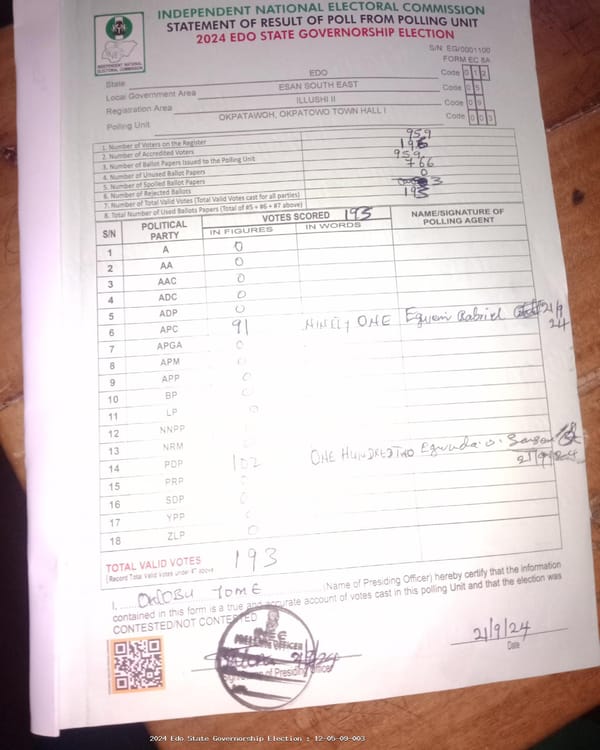 INDEPENDENT NATIONAL ELECTORAL COMMISSION
STATEMENT OF RESULT OF POLL FROM POLLING UNIT
2024 EDO STATE GOVERNORSHIP ELECTION
INDEPENDENT NATIONAL ELECTORAL COMMISSION
S/N EG/0001100
FORM EC 8A
State EDO Code 012
Local Government Area ESAN SOUTH EAST Code 05
Registration Area ILLUSHI II Code 09
Polling Unit OKPATAWOH, OKPATOWO TOWN HALL I Code 003
1. Number of Voters on the Register 959
2. Number of Accredited Voters 196
3. Number of Ballot Papers Issued to the Polling Unit 959
4. Number of Unused Ballot Papers 766
5. Number of Spoiled Ballot Papers 0
6. Number of Rejected Ballots 3
7. Number of Total Valid Votes (Total Valid Votes cast for all parties) 193
8. Total Number of Used Ballots Papers (Total of #5 + #6 + #7 above) 193
S/N POLITICAL PARTY VOTES SCORED NAME/SIGNATURE OF POLLING AGENT
IN FIGURES IN WORDS
1 A 0
2 AA 0
3 AAC 0
4 ADC 0
5 ADP 0
6 APC 91 NINETY ONE Gabriel 21/9/24
7 APGA 0
8 APM 0
9 APP 0
10 BP 0
11 LP 0
12 NNPP
13 NRM
14 PDP 102 ONE HUNDRED TWO 21/9/24
15 PRP 0
16 SDP 0
17 YPP 0
18 ZLP 0
TOTAL VALID VOTES 193
(Record Total Valid Votes under #7 above)
I, TOME (Name of Presiding Officer) hereby certify that the information
contained in this form is a true and accurate account of votes cast in this polling Unit and that the election was
CONTESTED/NOT CONTESTED
INEC
PRESIDING OFFICER
21/9/24
Signature of Presiding Officer
21/9/24
Date
2024 Edo State Governorship Election : 12-05-09-003